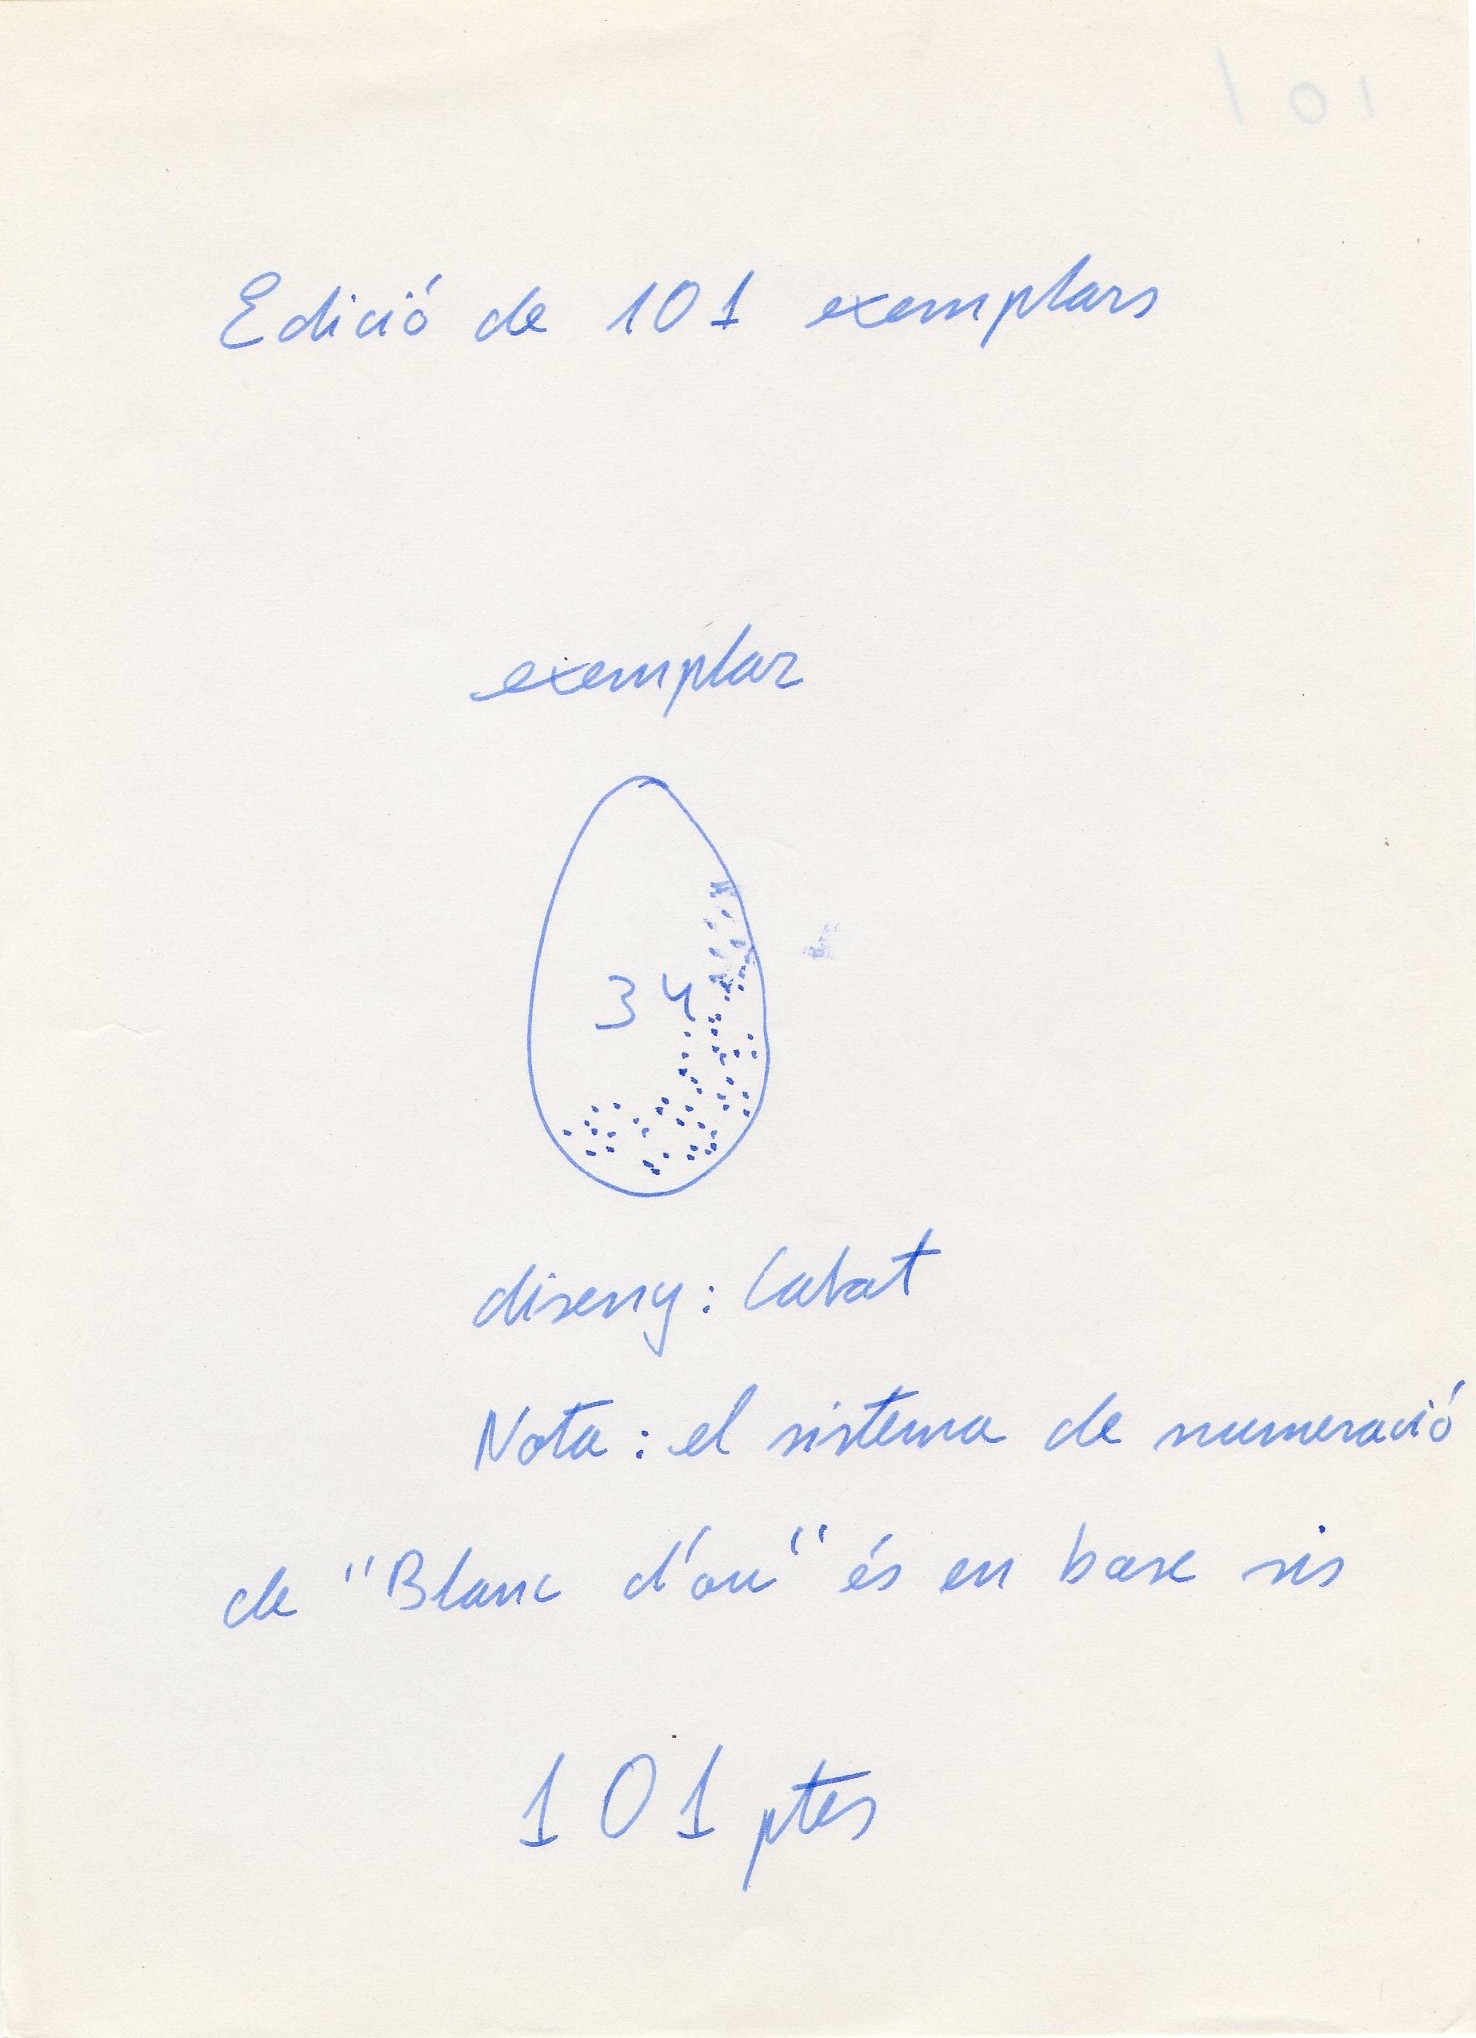 101
Edició de 101 exemplars
exemplar
34
diseny: Cabat
Nota: el sistema de numeració
de "Blanc d'ou" és en base sis
101 ptes